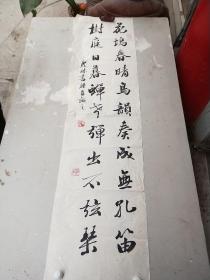 花塢春晴鳥韻奏成無孔笛
樹庭日暮蟬聲彈出不弦琴